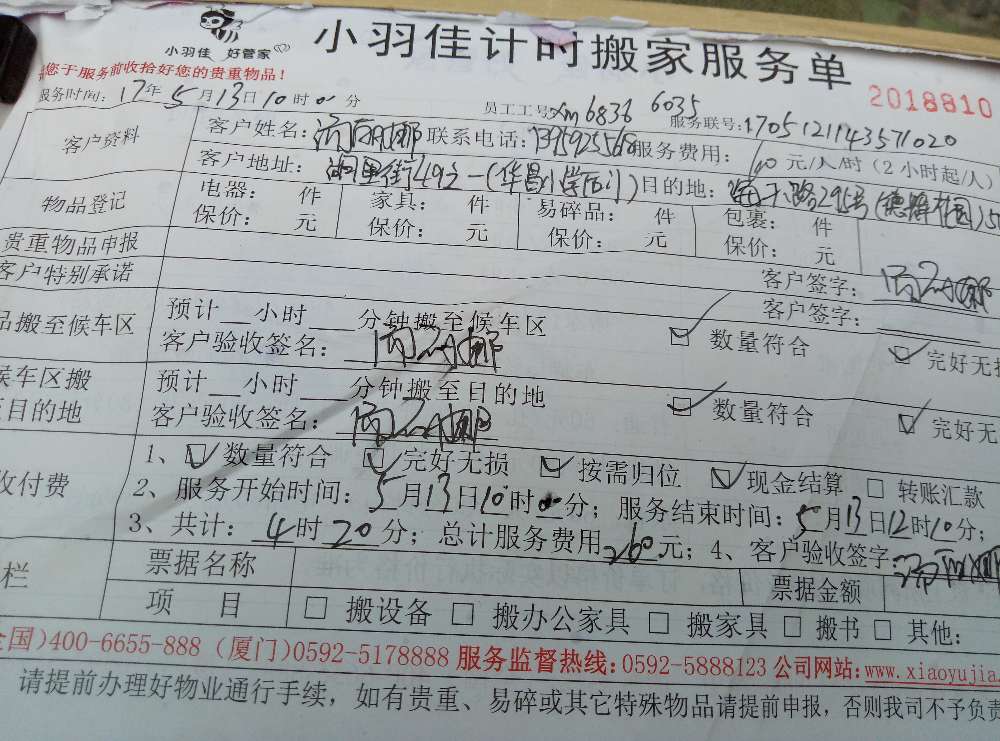 小羽佳 好管家
小羽佳计时搬家服务单
您于服务前收拾好您的贵重物品！
2018810
服务时间：17年5月13日10时00分
员工工号xm6836 6035
服务联号：1705121143571020
客户资料
客户姓名： 联系电话： 服务费用：60元/人/时（2小时起/人）
客户地址： 目的地：
物品登记
电器： 件 家具： 件 易碎品： 件 包裹： 件
保价： 元 保价： 元 保价： 元 保价： 元
贵重物品申报
客户签字：
客户特别承诺
客户签字：
品搬至候车区
预计 小时 分钟搬至候车区
客户验收签名：
数量符合 完好无损
候车区搬
至目的地
预计 小时 分钟搬至目的地
客户验收签名：
数量符合 完好无
收付费
1、数量符合 完好无损 按需归位 现金结算 转账汇款
2、服务开始时间：5月13日10时00分；服务结束时间：5月13日12时10分；
3、共计：4时20分；总计服务费用260元；4、客户验收签字：
栏
票据名称 票据金额
项 目 搬设备 搬办公家具 搬家具 搬书 其他：
全国)400-6655-888 (厦门)0592-5178888 服务监督热线：0592-5888123 公司网站：www.xiaoyujia.
请提前办理好物业通行手续，如有贵重、易碎或其它特殊物品请提前申报，否则我司不予负责